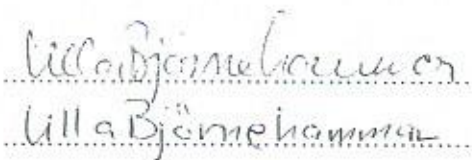 Ulla Björnehammar
Ulla Björnehammar